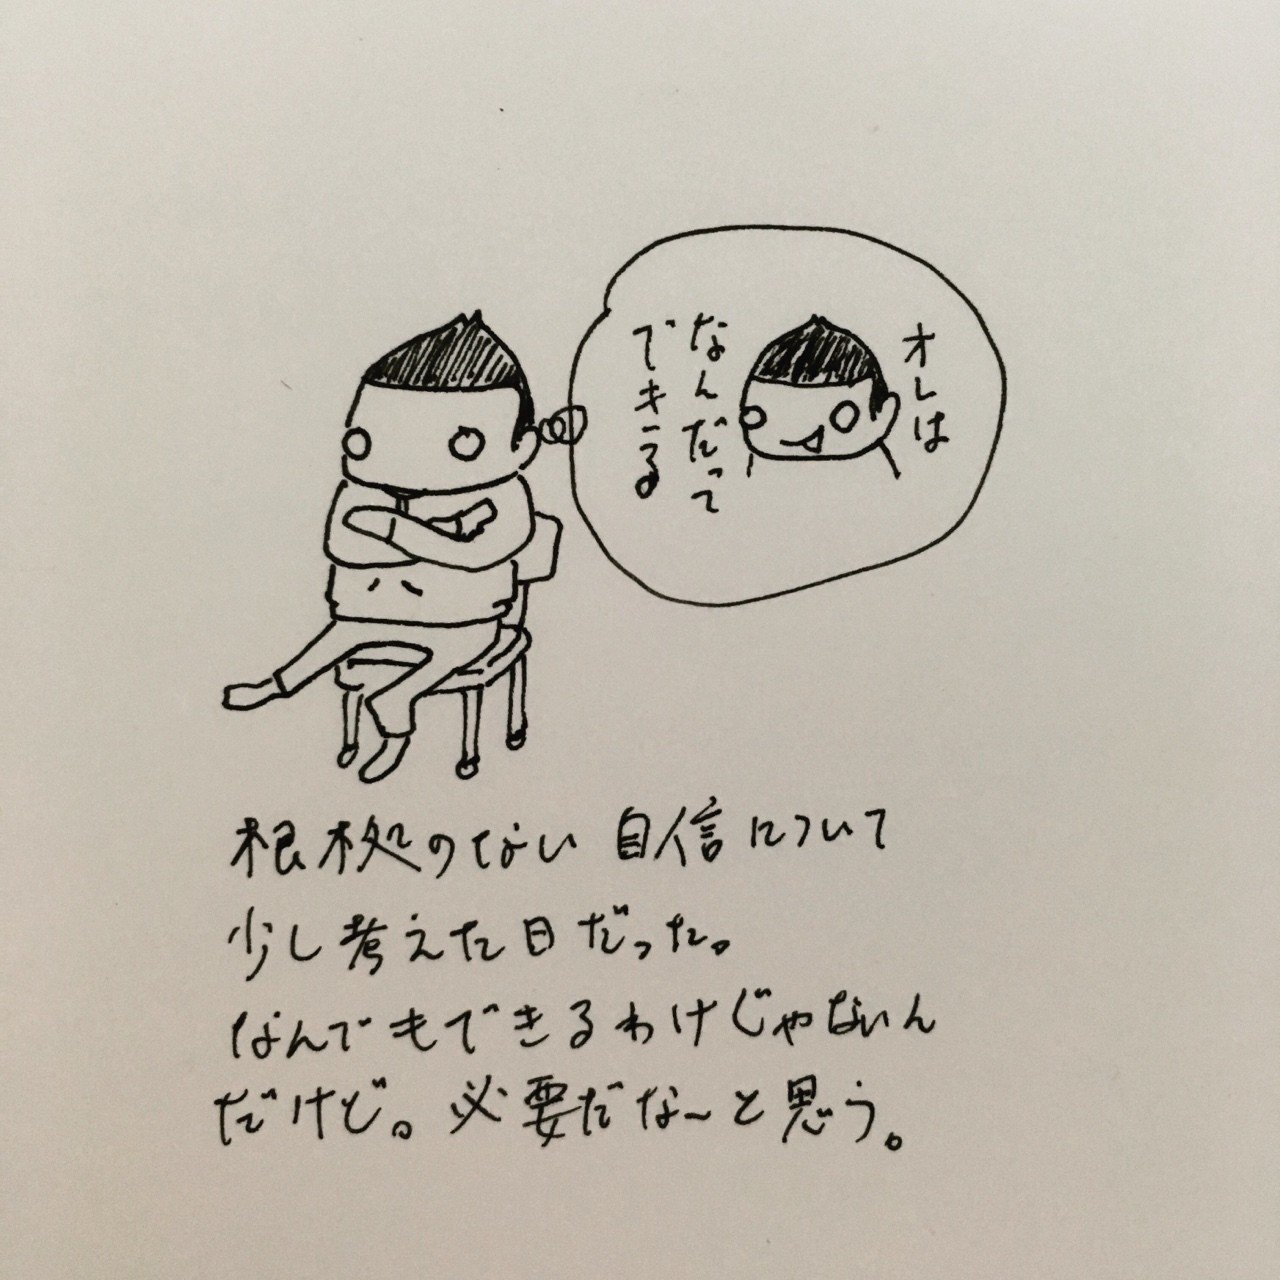 オレは
なんだって
できる
根拠のない自信について
少し考えた日だった。
なんでもできるわけじゃないん
だけど。必要だな〜と思う。